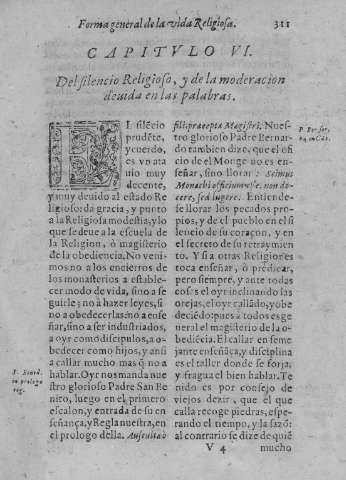 Forma general de la vida Religiosa. 311
CAPITVLO VI.
Del silencio Religioso, y de la moderacion
deuida en las palabras.
EL silẽcio
prudẽte,
y cuerdo,
es vn ata
uio muy
decente,
y muy deuido al estado Re
ligioso: da gracia, y punto
a la Religiosa modestia, y lo
que se deue a la escuela de
la Religion, ò magisterio
de la obediencia. No veni
mos no a los encierros de
los monasterios a estable-
cer modo de vida, sino a se
guirle; no à hazer leyes, si
no a obedecerlas: no a ense
ñar, sino a ser industriados,
a oyr como dicipulos, a o-
bedecer como hijos, y ansi
a callar mucho mas q̃ no a
hablar. Oyr nos manda nue
stro glorioso Padre San Be
nito, luego en el primero
escalon, y entrada de su en
señança, y Regla nuestra, en
el prologo della. Ausculta ò
S. Bened.
in prologo
reg.
fili, præcepta Magistri. Nues-
tro glorioso Padre Bernar-
do tambien dize, que el ofi
cio de el Monge no es en-
señar, sino llorar: Scimus
Monachi officium esse, non do-
cere, sed lugere. Entiende-
se llorar los pecados pro-
pios, y de el pueblo en el si
lencio de su coraçon, y en
el secreto de su retraymien
to. Y si a otras Religiones
toca enseñar, ò predicar,
pero siempre, y ante todas
cosas el oyr inclinando las
orejas, el oyr callãdo, y obe
deciẽdo: pues a todos es ge
neral el magisterio de la o-
bediẽcia. El callar en seme
jante enseñãça, y disciplina
es el taller donde se forja,
y fragua el bien hablar. Te
nido es por consejo de
viejos dezir, que el que
calla recoge piedras, espe-
rando el tiempo, y la sazõ:
al contrario se dize de quiẽ
V 4 mucho